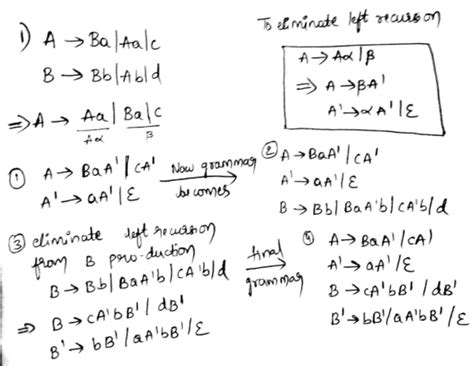 To eliminate left recursion
1) A → Ba|Aa|c
B → Bb|Ab|d
A → Aα|β
⇒ A → βA'
A' → αA'|ε
⇒ A → Aa | Ba|c
Aα β
① A → BaA' | cA'
A' → aA'|ε
Now grammar
becomes
② A → BaA' | cA'
A' → aA'|ε
B → Bb|BaA'b|cA'b|d
③ eliminate left recursion
from B pro-duction
B → Bb|BaA'b|cA'b|d
⇒ B → cA'bB' | dB'
B' → bB' | aA'bB' | ε
final
grammar
④ A → BaA' | cA)
A' → aA' | ε
B → cA'bB' | dB'
B' → bB' | aA'bB' | ε